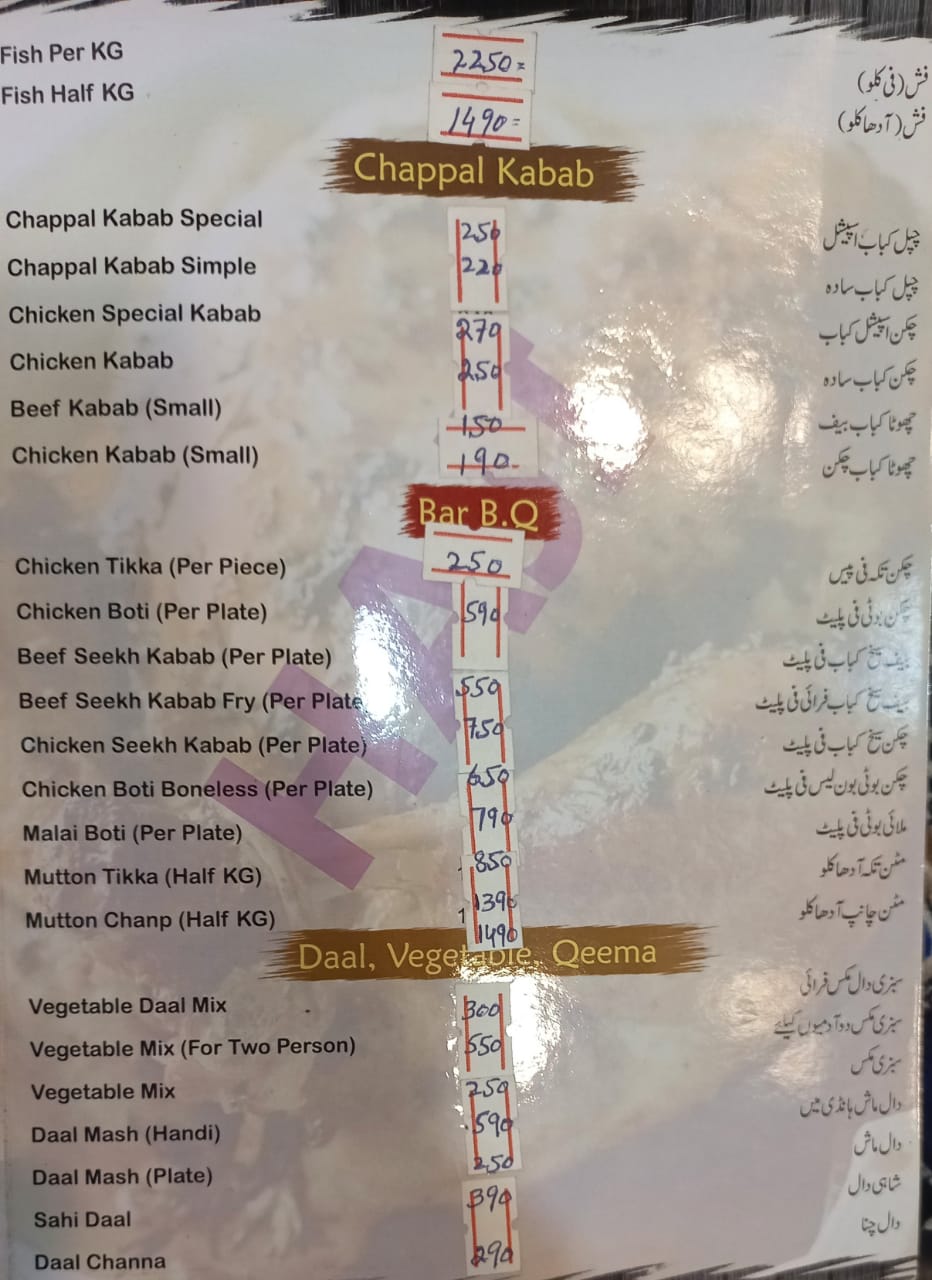 Fish Per KG 2250= فش (فی کلو)
Fish Half KG 1490= فش (آدھا کلو)
Chappal Kabab
Chappal Kabab Special 250 چپل کباب اسپیشل
Chappal Kabab Simple 220 چپل کباب سادہ
Chicken Special Kabab 270 چکن اسپیشل کباب
Chicken Kabab 250 چکن کباب سادہ
Beef Kabab (Small) 150 چھوٹا کباب بیف
Chicken Kabab (Small) 190 چھوٹا کباب چکن
Bar B.Q
Chicken Tikka (Per Piece) 250 چکن تکہ فی پیس
Chicken Boti (Per Plate) 590 چکن بوٹی فی پلیٹ
Beef Seekh Kabab (Per Plate) 550 بیف سیخ کباب فی پلیٹ
Beef Seekh Kabab Fry (Per Plate 750 بیف سیخ کباب فرائی فی پلیٹ
Chicken Seekh Kabab (Per Plate) 650 چکن سیخ کباب فی پلیٹ
Chicken Boti Boneless (Per Plate) 790 چکن بوٹی بون لیس فی پلیٹ
Malai Boti (Per Plate) 850 ملائی بوٹی فی پلیٹ
Mutton Tikka (Half KG) 1390 مٹن تکہ آدھا کلو
Mutton Chanp (Half KG) 1490 مٹن چانپ آدھا کلو
Daal, Vegetable, Qeema
Vegetable Daal Mix 300 سبزی دال مکس فرائی
Vegetable Mix (For Two Person) 550 سبزی مکس دو آدمیوں کیلئے
Vegetable Mix 250 سبزی مکس
Daal Mash (Handi) 590 دال ماش ہانڈی میں
Daal Mash (Plate) 250 دال ماش
Sahi Daal 390 شاہی دال
Daal Channa 290 دال چنا